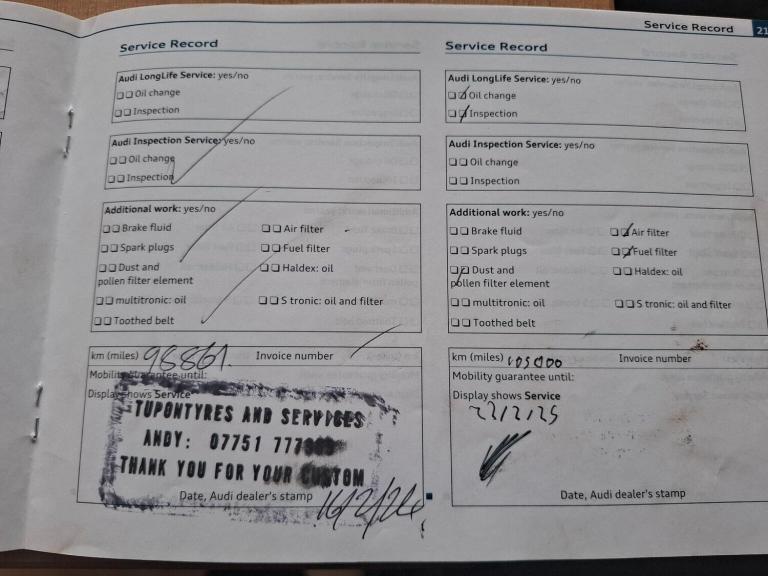 Service Record 21
Service Record
Audi LongLife Service: yes/no
❑ ❑ Oil change
❑ ❑ Inspection
Audi Inspection Service: yes/no
❑ ❑ Oil change
❑ ❑ Inspection
Additional work: yes/no
❑ ❑ Brake fluid ❑ ❑ Air filter
❑ ❑ Spark plugs ❑ ❑ Fuel filter
❑ ❑ Dust and ❑ ❑ Haldex: oil
pollen filter element
❑ ❑ multitronic: oil ❑ ❑ S tronic: oil and filter
❑ ❑ Toothed belt
km (miles) 98861. Invoice number
Mobility guarantee until:
Display shows Service
TUPONTYRES AND SERVICES
ANDY: 07751 777
THANK YOU FOR YOUR CUSTOM
Date, Audi dealer's stamp 16/2/24
Service Record
Audi LongLife Service: yes/no
❑ ❑ Oil change
❑ ❑ Inspection
Audi Inspection Service: yes/no
❑ ❑ Oil change
❑ ❑ Inspection
Additional work: yes/no
❑ ❑ Brake fluid ❑ ❑ Air filter
❑ ❑ Spark plugs ❑ ❑ Fuel filter
❑ ❑ Dust and ❑ ❑ Haldex: oil
pollen filter element
❑ ❑ multitronic: oil ❑ ❑ S tronic: oil and filter
❑ ❑ Toothed belt
km (miles) 105000 Invoice number
Mobility guarantee until:
Display shows Service
22/2/25
Date, Audi dealer's stamp